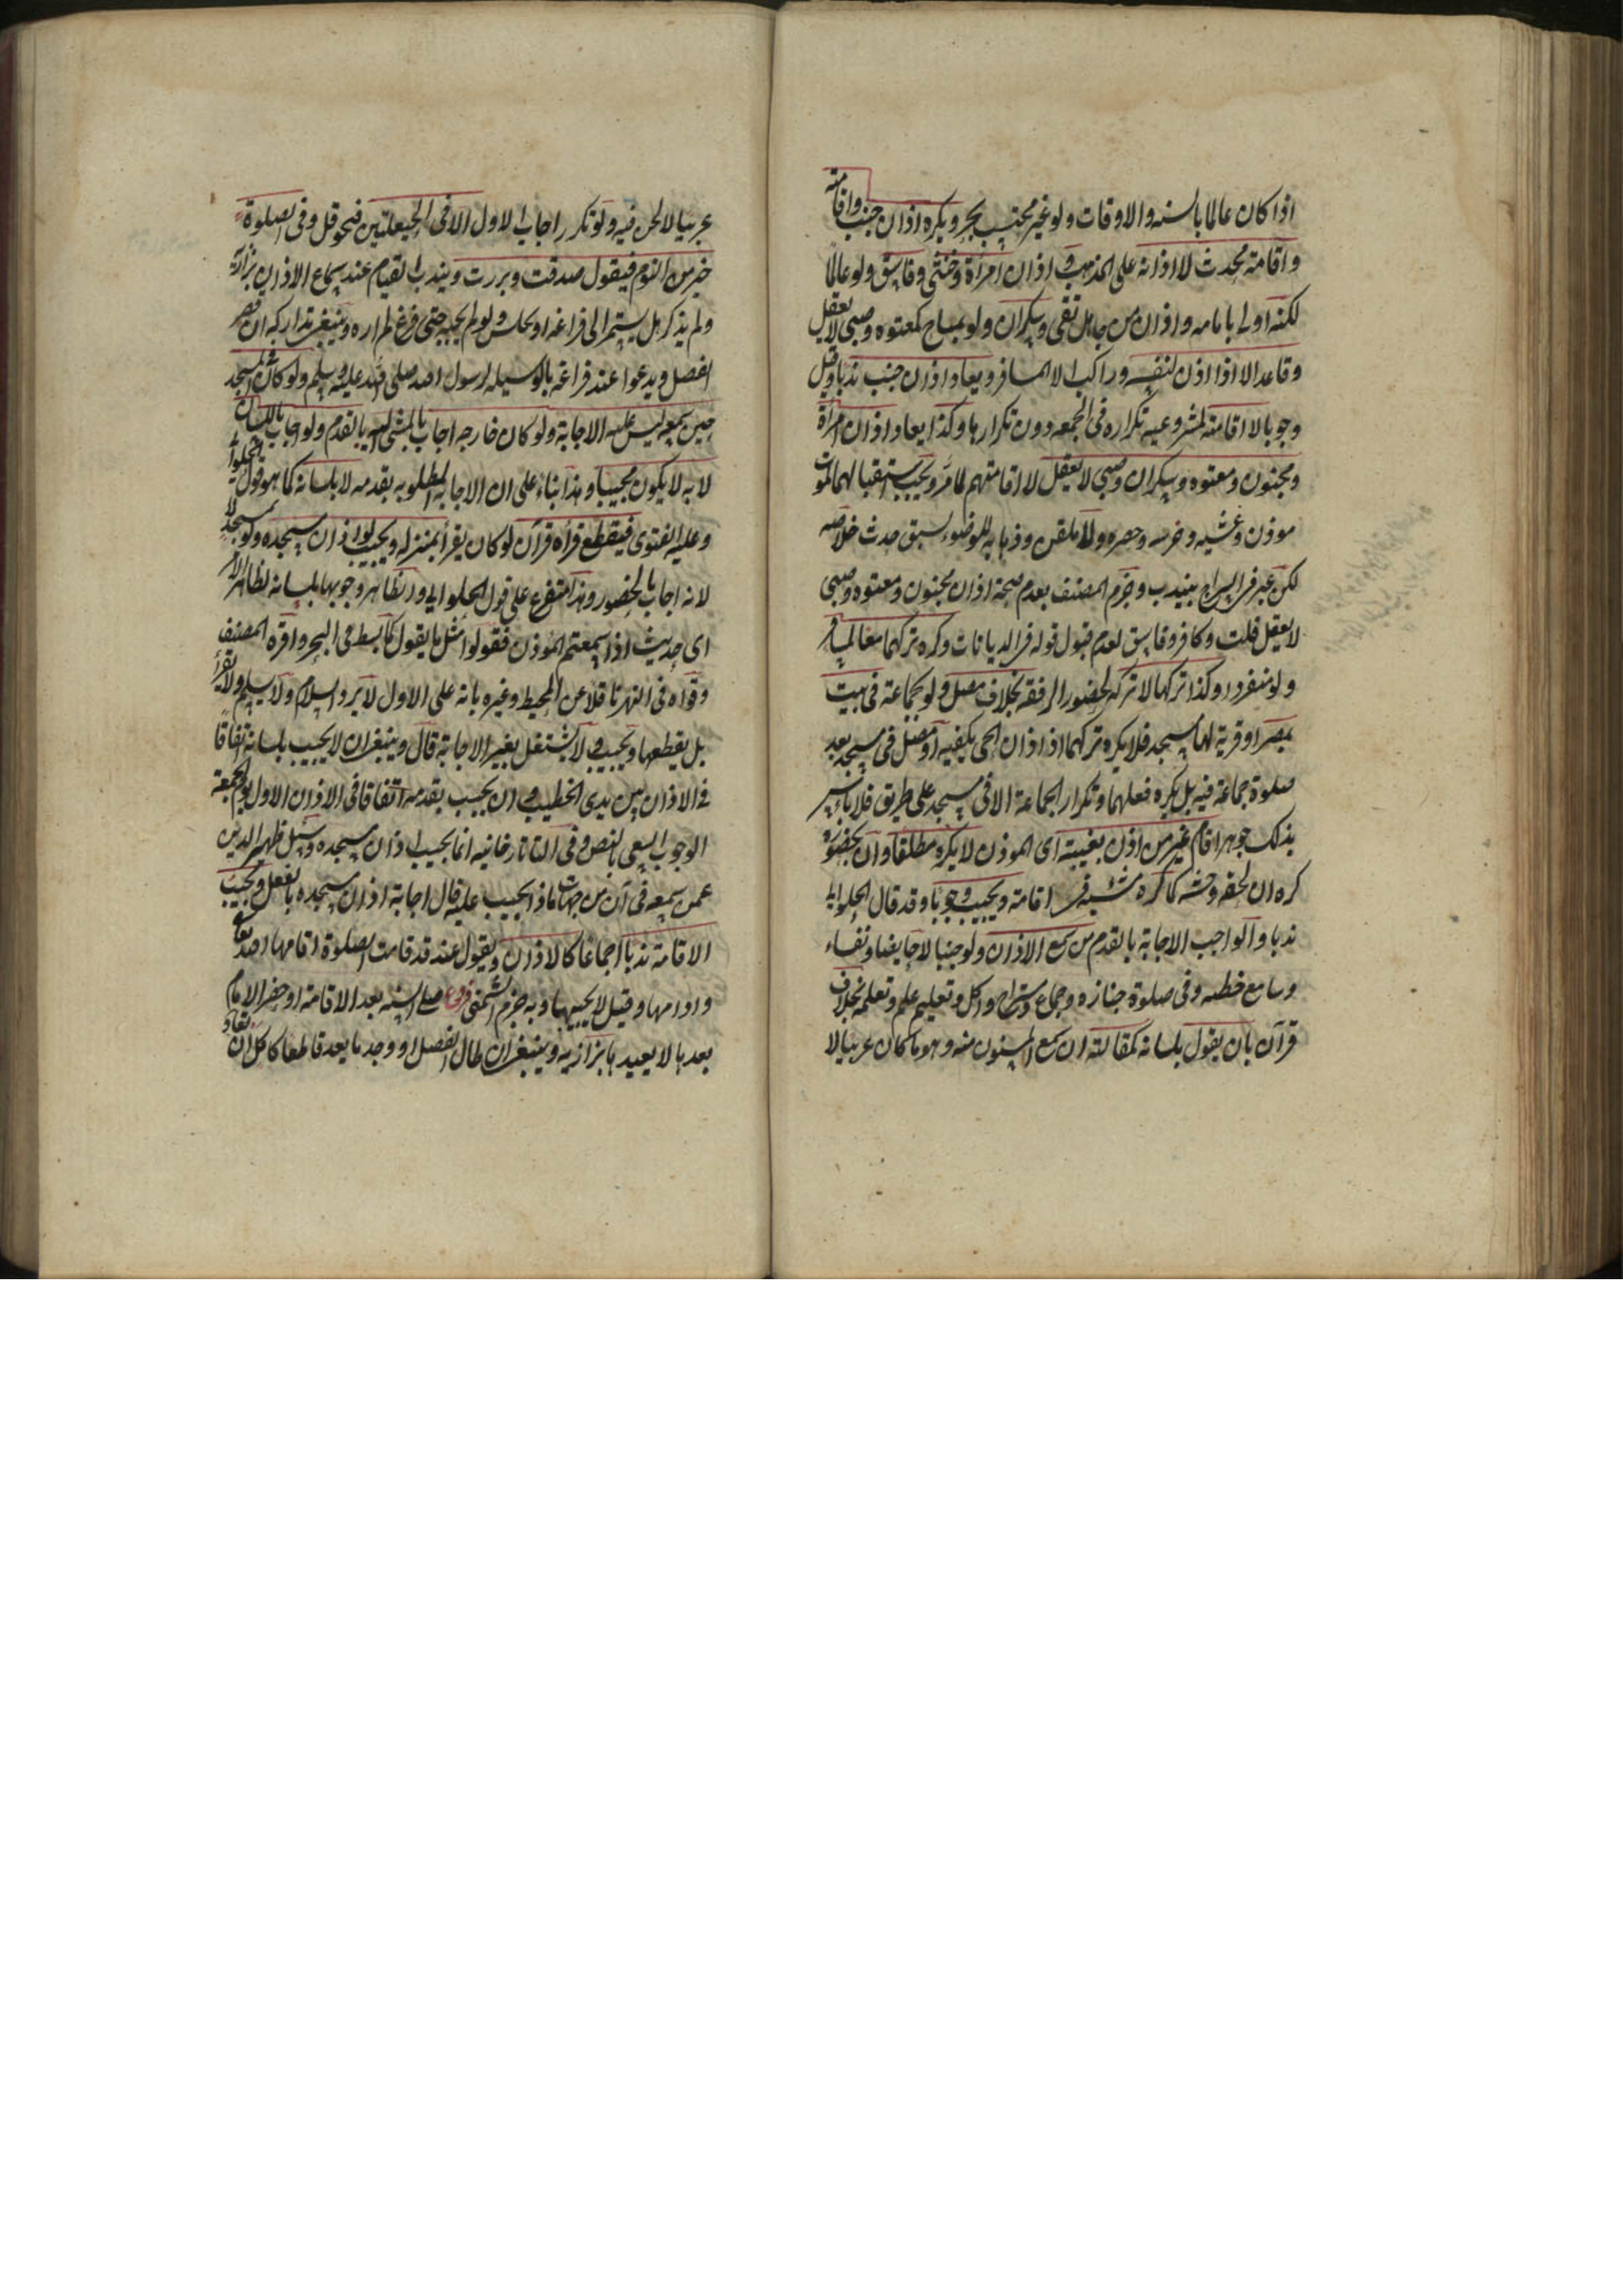 اذا كان عالما بالسنه والاوقات ولو غير محتسب بحر ويكره اذان جنب واقامته
واقامة محدث لا اذانه على المذهب و اذان امرأة وخنثى وفاسق ولو عالما
لكنه اولى بامامه واذان من جاهل تقى وسكران ولو بمباح كمعتوه وصبى لا يعقل
وقاعد الا اذا اذن لنفسه وراكب الا المسافر ويعاد اذان جنب ندبا وقيل
وجوبا لا اقامته لمشروعية تكراره فى الجمعه دون تكرارها وكذا يعاد اذان امرأة
ومجنون ومعتوه وسكران وصبى لا يعقل لا اقامتهم لما مر ويجب استقبالهما لموت
موذن وغشيه وخرسه وحصره ولا ملقن وذهابه للوضوء لسبق حدث خلاصه
لكن عبر فى السراج بيندب وجزم المصنف بعدم صحة اذان مجنون ومعتوه وصبى
لا يعقل قلت وكافر وفاسق لعدم قبول قوله فى الديانات وكره تركهما معا لمسافر
ولو منفردا وكذا تركها لا تركه لحضور الرفقه بخلاف مصل ولو بجماعة فى بيت
بمصر او قرية لها مسجد فلا يكره تركهما اذ اذان الحى يكفيه او مصل فى مسجد بعد
صلوة جماعة فيه بل يكره فعلهما وتكرار الجماعة الا فى مسجد على طريق فلا بأس
بذلك جوهر اقام غير من اذن بغيبته اى الموذن لا يكره مطلقا وان بحضوره
كره ان لحقه وحشه كما كره مشيه فى اقامته ويجيب وجوبا وقد قال الحلوانى
ندبا والواجب الاجابة بالقدم من سمع الاذان ولو جنبا لا حايضا ونفساء
وسامع خطبه وفى صلوة جنازه وجماع ومستراح واكل وتعليم علم وتعلمه بخلاف
قرآن بان يقول بلسانه كمقالته ان سمع المسنون منه وهو ما كان عربيا لا
عربيا لا لحن فيه ولو تكرر اجاب الاول الا فى الحيعلتين فيحوقل وفى الصلوة
خير من النوم فيقول صدقت وبررت ويندب القيام عند سماع الاذان بزازيه
ولم يذكر هل يستمر الى فراغه او يجلس ولو لم يجبه حتى فرغ لم اره وينبغى تداركه ان قصر
الفصل ويدعوا عند فراغه بالوسيله لرسول الله صلى الله عليه وسلم ولو كان فى المسجد
حين سمعه ليس عليه الاجابة ولو كان خارجه اجاب بالمشى اليه بالقدم ولو اجاب باللسان
لا به لا يكون مجيبا وهذا بناء على ان الاجابة المطلوبه بقدمه لا بلسانه كما هو قول الحلوانى
وعليه الفتوى فيقطع قرأة قرآن لو كان يقرأ بمنزله ويجيب لو اذان مسجده ولو بمسجد لا
لانه اجاب بالحضور وهذا متفرع على قول الحلوانى والظاهر وجوبها بلسانه لظاهر الامر
اى حديث اذا سمعتم الموذن فقولوا مثل ما يقول كما بسط فى البحر واقره المصنف
وقواه فى النهر ناقلا عن المحيط وغيره بانه على الاول لا يرد السلام ولا يسلم ولا يقرأ
بل يقطعها ويجيب و لا يشتغل بغير الاجابة قال وينبغى ان لا يجيب بلسانه اتفاقا
فى الاذان بين يدى الخطيب و ان يجيب بقدمه اتفاقا فى الاذان الاول يوم الجمعة
لوجوب السعى بالنص وفى التاتارخانيه انما يجيب اذان مسجده وسئل ظهير الدين
عمن سمعه فى آن من جهات ماذا يجيب عليه قال اجابة اذان مسجده بالفعل ويجيب
الاقامة ندبا اجماعا كالاذان ويقول عند قد قامت الصلوة اقامها الله تعالى
وادامها وقيل لا يجيبها وبه جزم الشمنى فروع صلى السنه بعد الاقامة او حضر الامام
بعدها لا يعيدها بزازيه وينبغى ان طال الفصل او وجد ما يعد قاطعا كاكل ان تعاد